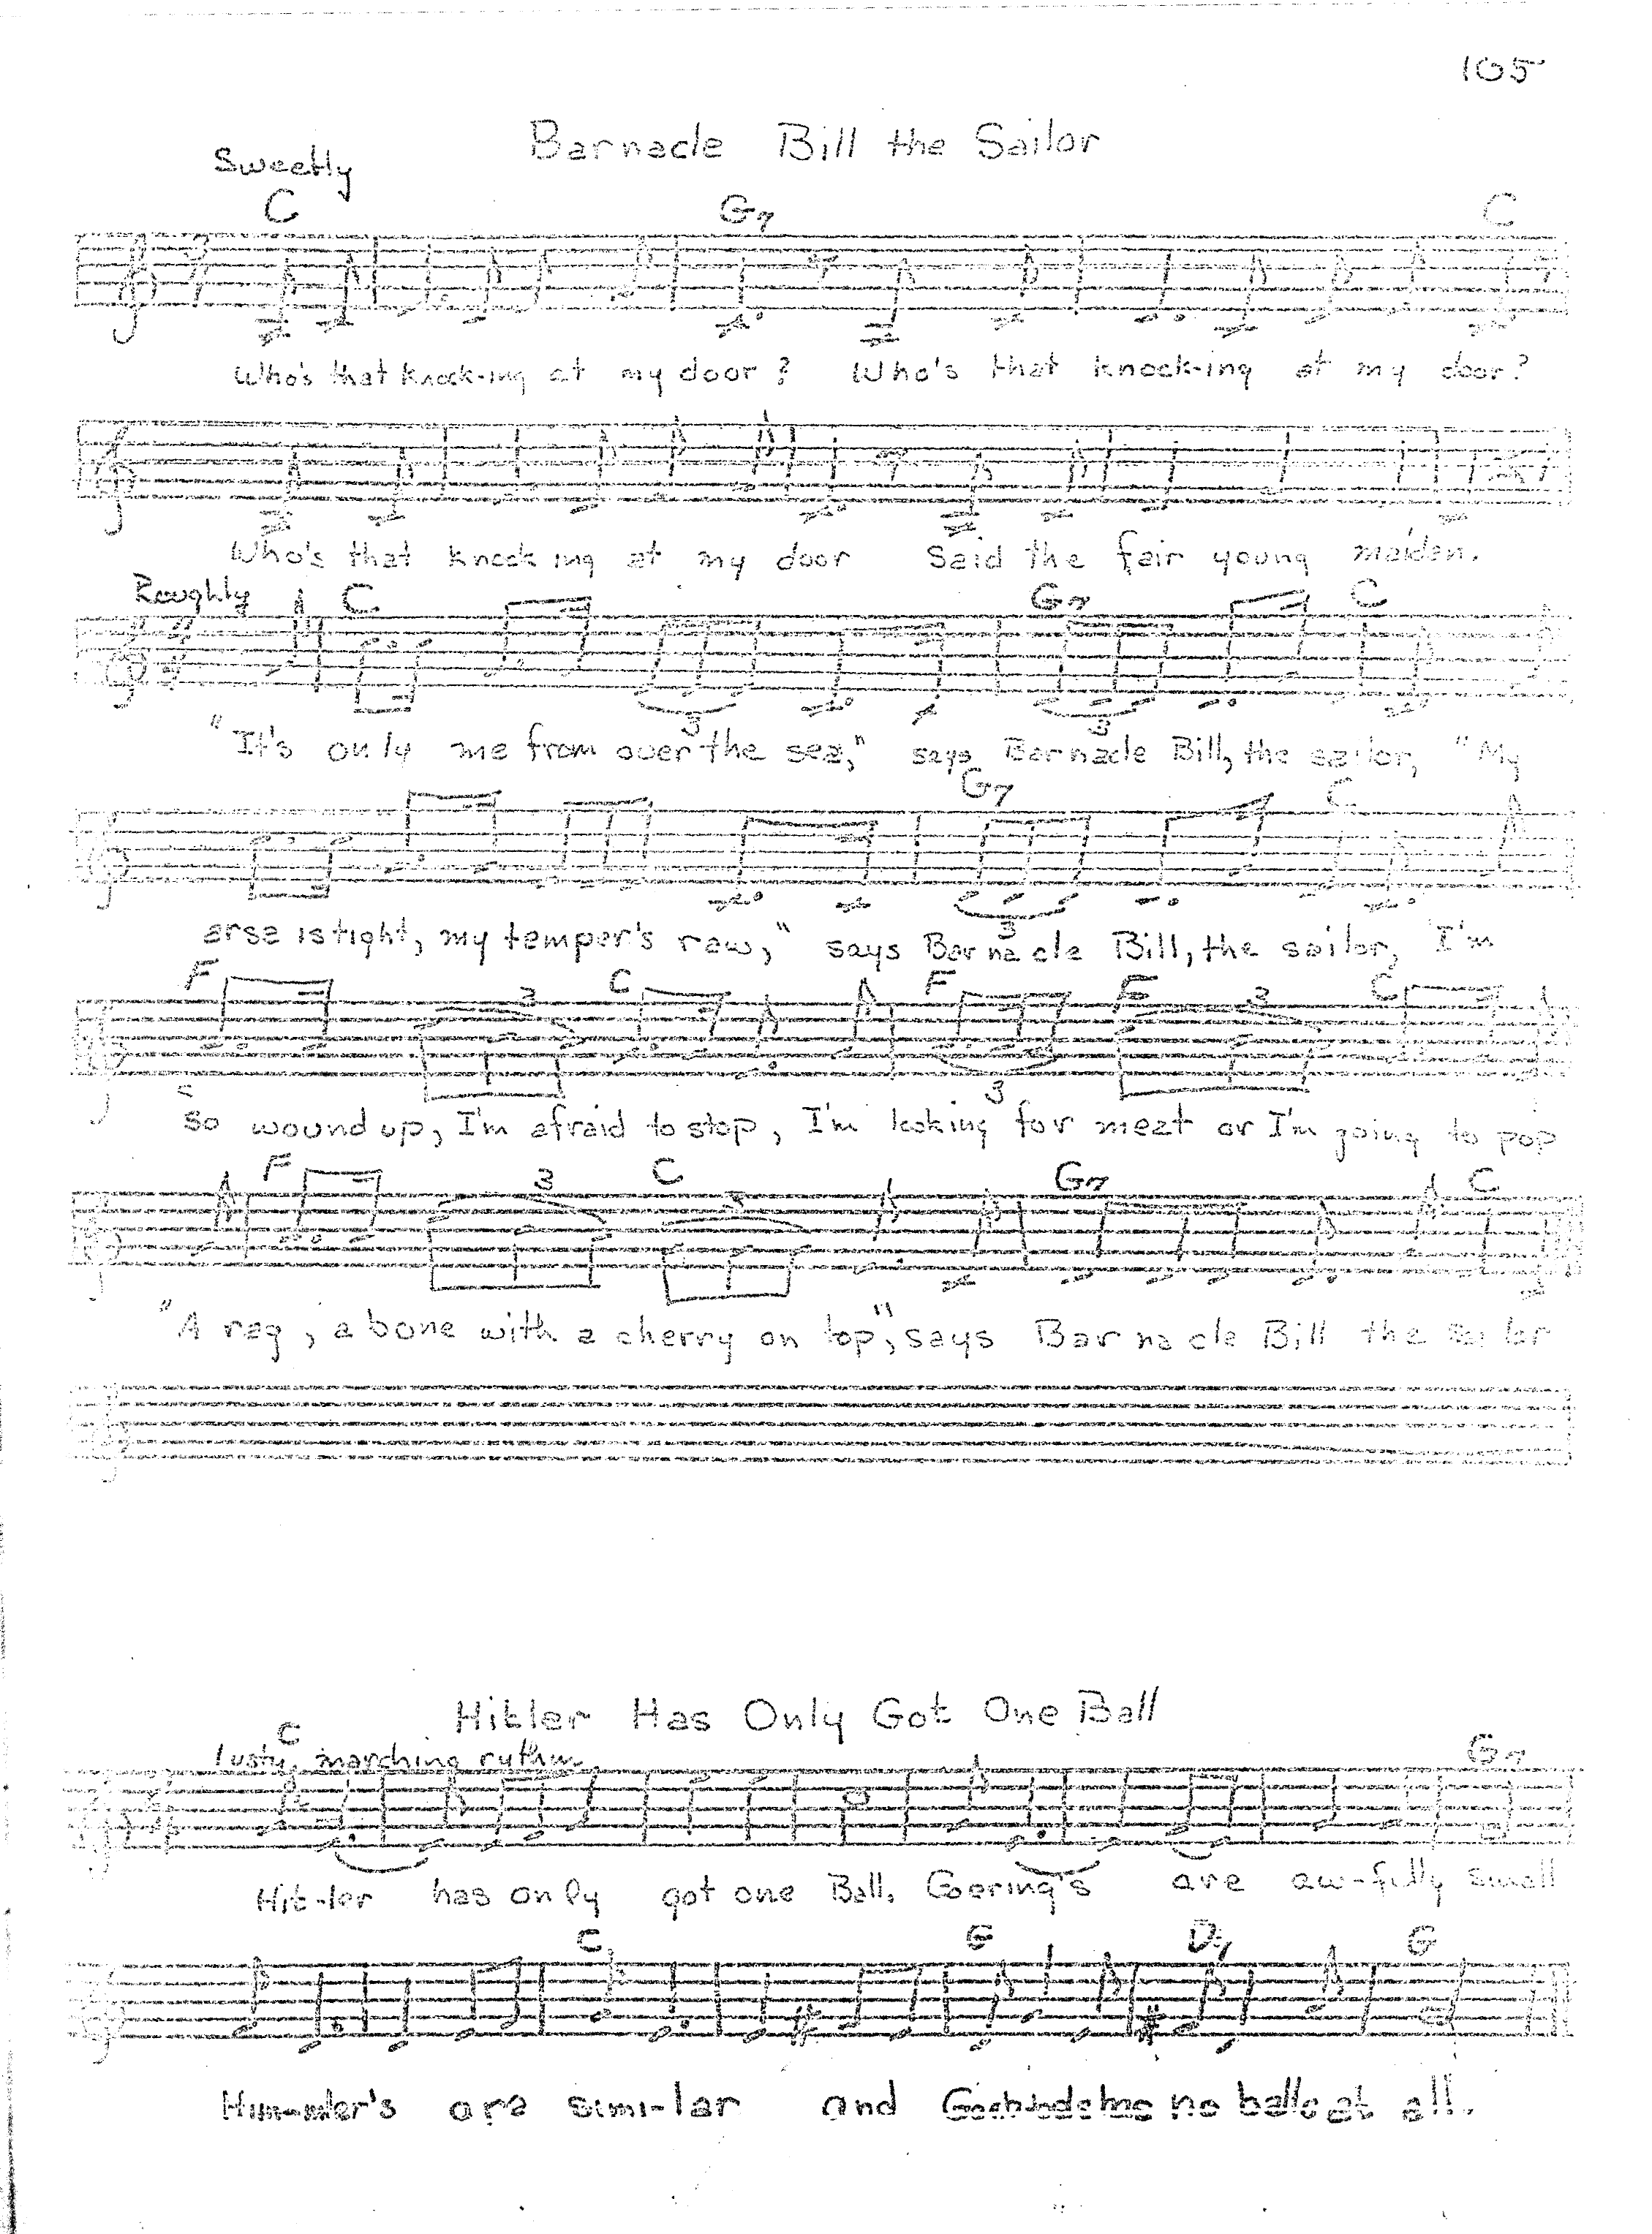 105
Barnacle Bill the Sailor
Sweetly
C G7 C
Who's that knock-ing at my door? Who's that knock-ing at my door?
Who's that knock ing at my door Said the fair young maiden.
Roughly C G7 C
"It's only me from over the sea," says Barnacle Bill, the sailor, "My
3 3
G7 C
arse is tight, my temper's raw," says Bar na cle Bill, the sailor, I'm
3
F 3 C F F 3 C
3
so wound up, I'm afraid to stop, I'm looking for meat or I'm going to pop
F 3 C G7 C
"A rag, a bone with a cherry on top", says Bar na cle Bill the sai lor
Hitler Has Only Got One Ball
C G7
lusty, marching rythm
Hit-ler has only got one Ball, Goering's are aw-fully small
C G D7 G
Him-mler's are simi-lar and no balls at all.